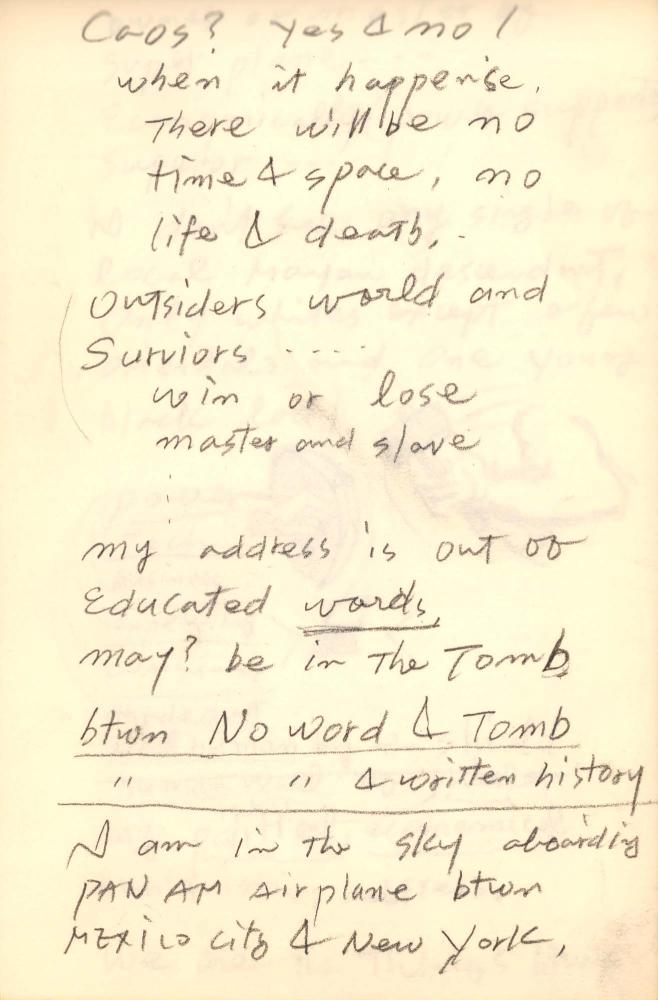 Caos? Yes & no!
when it happenise,
There will be no
time & space, no
life & death,.
Outsiders world and
Surviors ....
win or lose
master and slave
my address is out of
Educated words,
may? be in The Tomb
btwn No word & Tomb
" " & written history
I am in The sky aboarding
PAN AM Airplane btwn
MEXICO City & New York,